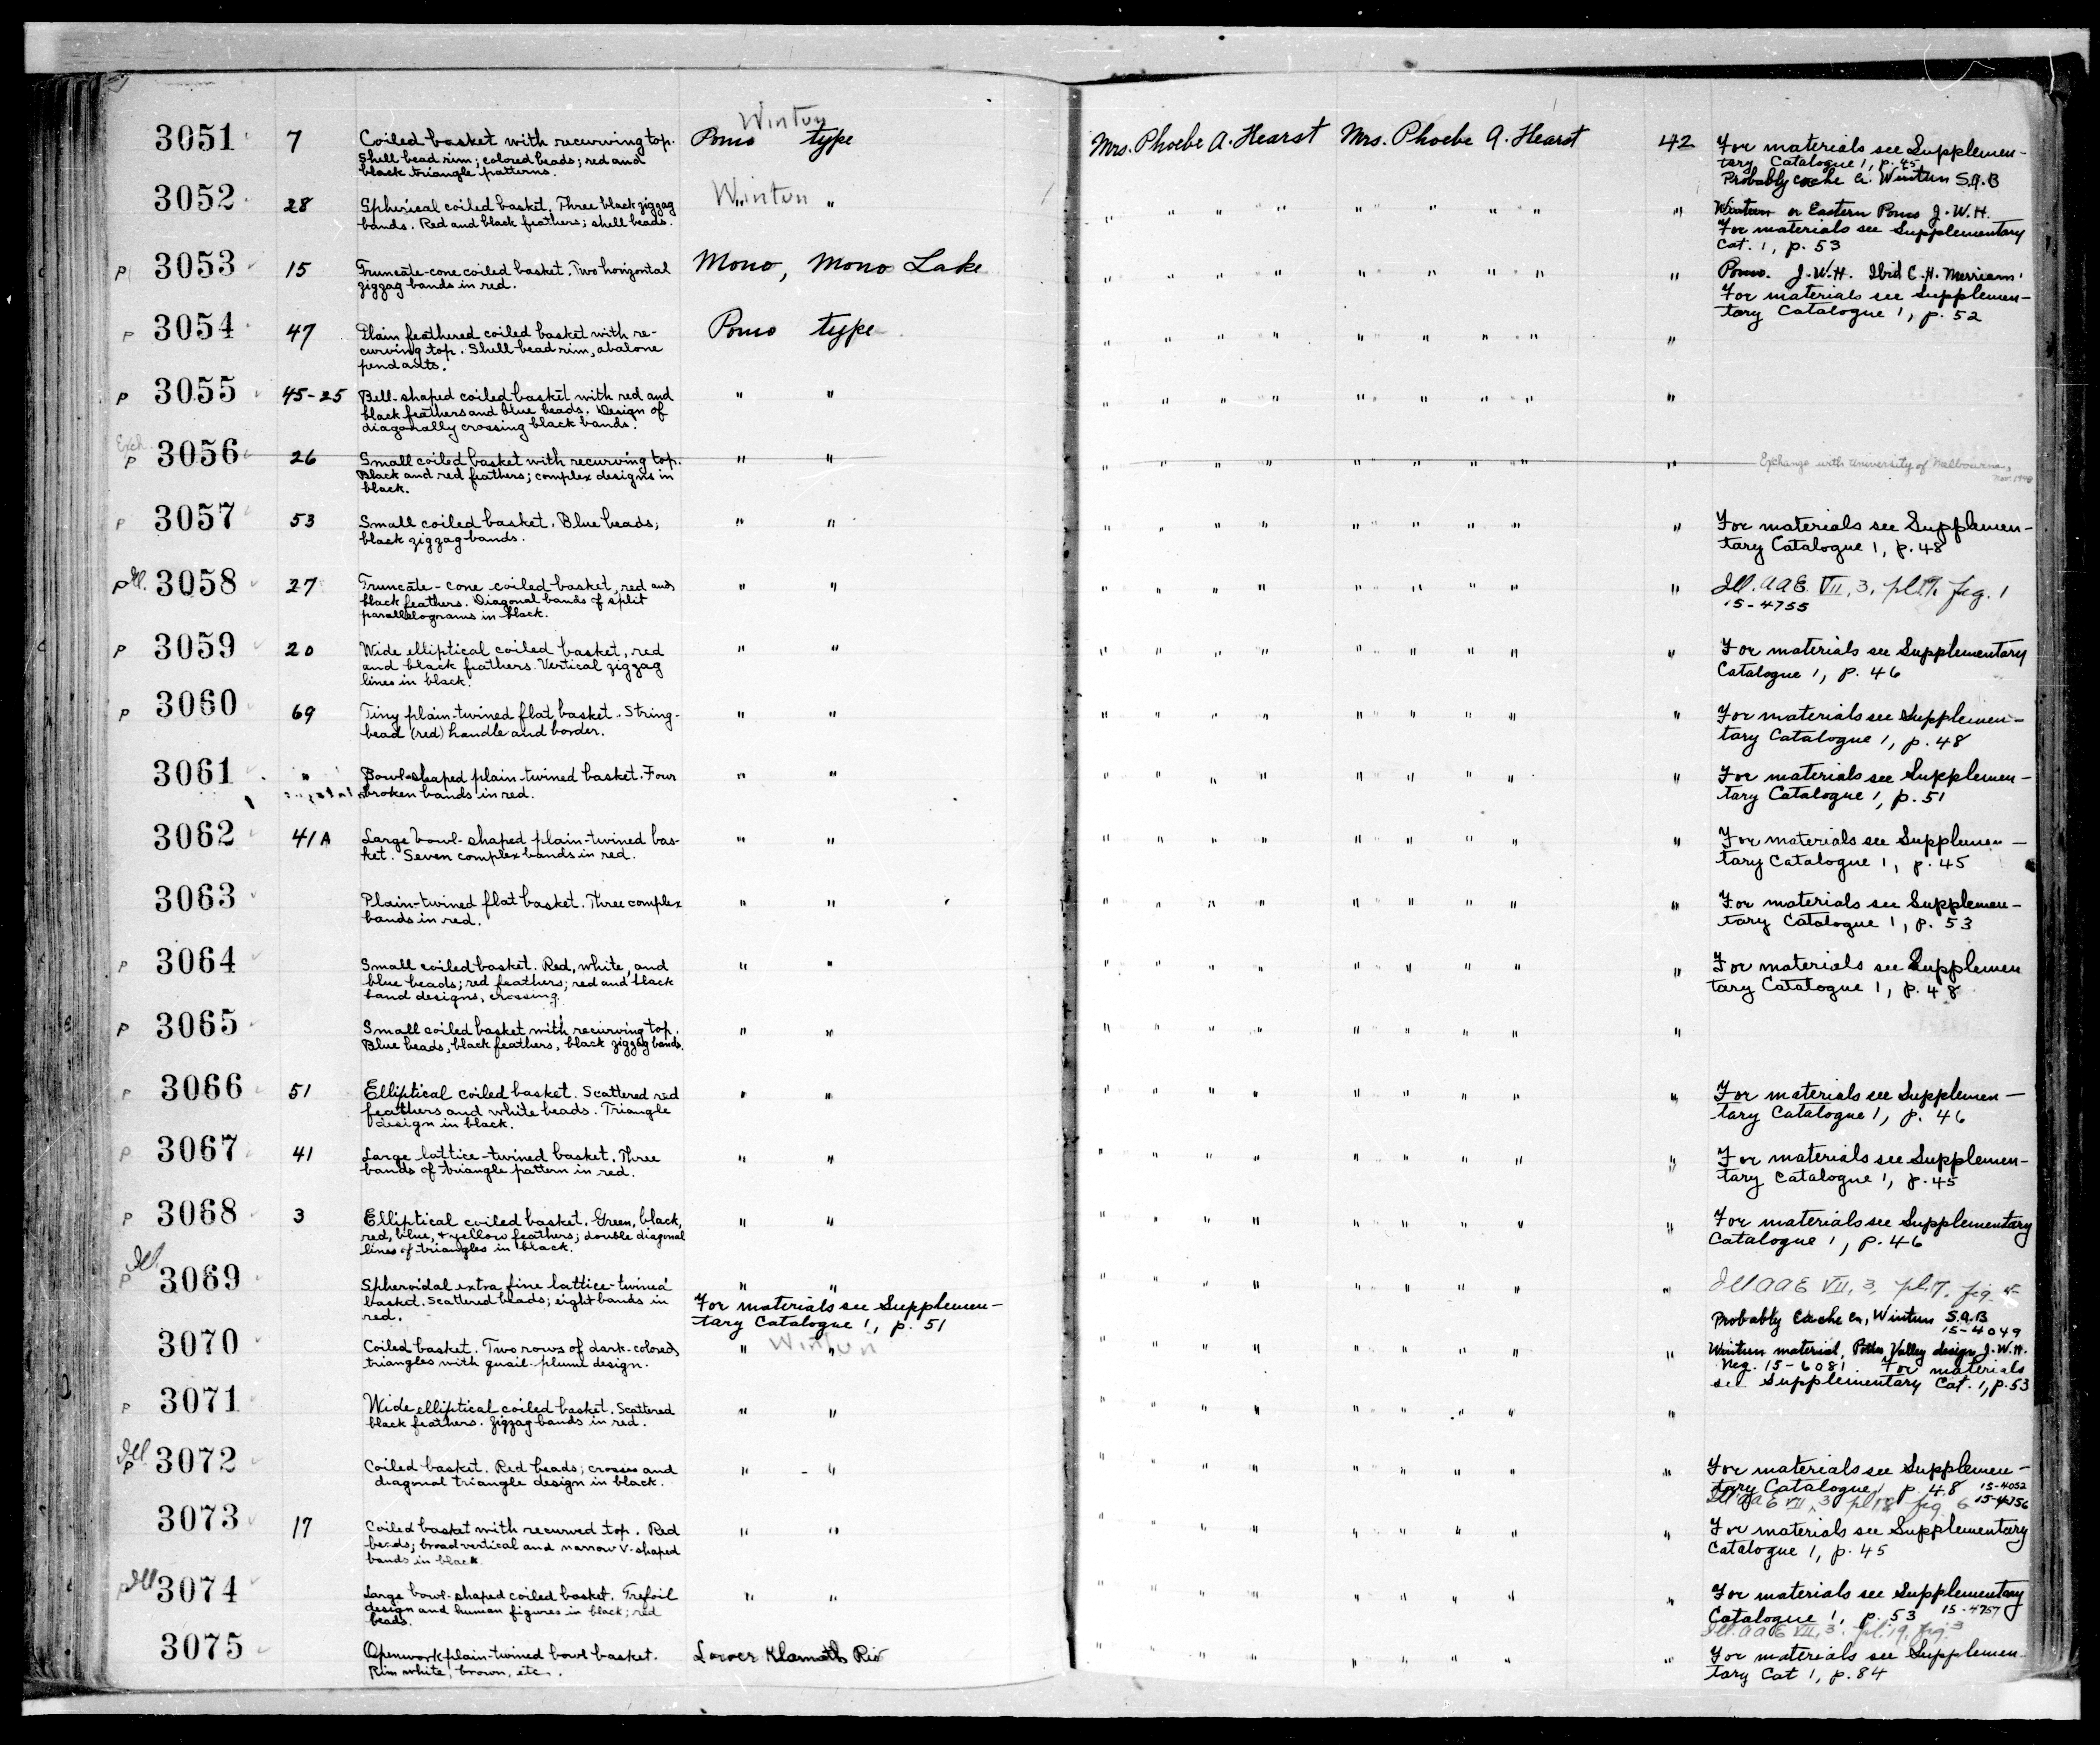 Wintun
3051 7 Coiled basket with recurving top. Pomo type Mrs. Phoebe A. Hearst Mrs. Phoebe A. Hearst 42 For materials see Supplemen-
Shell bead rim; colored beads; red and tary Catalogue 1, p. 45
black triangle patterns. Probably Cache Cr. Wintun S.A.B
3052 28 Spherical coiled basket. Three black zigzag Wintun " " " " " " " " " " Wintun or Eastern Pomo J.W.H.
bands. Red and black feathers; shell beads. For materials see Supplementary
Cat. 1, p. 53
P 3053 15 Truncate-cone coiled basket. Two horizontal Mono, Mono Lake " " " " " " " " " Pomo. J.W.H. Ibid C.H. Merriam
zigzag bands in red. For materials see Supplemen-
tary Catalogue 1, p. 52
P 3054 47 Plain feathered coiled basket with re- Pomo type " " " " " " " " "
curving top. Shell bead rim, abalone
pendants.
P 3055 45-25 Bell-shaped coiled basket with red and " " " " " " " " " " "
black feathers and blue beads. Design of
diagonally crossing black bands.
Exch.
P 3056 26 Small coiled basket with recurving top. " " " " " " " " " " " Exchange with University of Melbourne,
Black and red feathers; complex designs in Nov. 1948
black.
P 3057 53 Small coiled basket. Blue beads; " " " " " " " " " " " For materials see Supplemen-
black zigzag bands. tary Catalogue 1, p. 48
P Ill. 3058 27 Truncate-cone coiled basket, red and " " " " " " " " " " " Ill. AAE VII, 3, pl. fig. 1
black feathers. Diagonal bands of split 15-4755
parallelograms in black.
P 3059 20 Wide elliptical coiled basket, red " " " " " " " " " " " For materials see Supplementary
and black feathers. Vertical zigzag Catalogue 1, p. 46
lines in black.
P 3060 69 Tiny plain-twined flat basket. String- " " " " " " " " " " " For materials see Supplemen-
bead (red) handle and border. tary Catalogue 1, p. 48
3061 Bowl-shaped plain-twined basket. Four " " " " " " " " " " " For materials see Supplemen-
broken bands in red. tary Catalogue 1, p. 51
3062 41A Large bowl-shaped plain-twined bas- " " " " " " " " " " " For materials see Supplemen-
ket. Seven complex bands in red. tary Catalogue 1, p. 45
3063 Plain-twined flat basket. Three complex " " " " " " " " " " " For materials see Supplemen-
bands in red. tary Catalogue 1, p. 53
P 3064 Small coiled basket. Red, white, and " " " " " " " " " " " For materials see Supplemen
blue beads; red feathers; red and black tary Catalogue 1, p. 48
band designs, crossing.
P 3065 Small coiled basket with recurving top. " " " " " " " " " " "
Blue beads, black feathers, black zigzag bands.
P 3066 51 Elliptical coiled basket. Scattered red " " " " " " " " " " " For materials see Supplemen-
feathers and white beads. Triangle tary Catalogue 1, p. 46
design in black.
P 3067 41 Large lattice-twined basket. Three " " " " " " " " " " " For materials see Supplemen-
bands of triangle pattern in red. tary Catalogue 1, p. 45
P 3068 3 Elliptical coiled basket. Green, black, " " " " " " " " " " " For materials see Supplementary
red, blue, + yellow feathers; double diagonal Catalogue 1, p. 46
lines of triangles in black.
Ill
P 3069 Spheroidal extra fine lattice-twined " " " " " " " " " " " Ill AAE VII, 3, pl. 17, fig. 5
basket. Scattered beads; eight bands in For materials see Supplemen-
red. tary Catalogue 1, p. 51 Probably Cache Cr., Wintun S.A.B
15-4049
3070 Coiled basket. Two rows of dark-colored " Wintun " " " " " " " " " Wintun material, Potter Valley design J.W.H.
triangles with quail-plume design. Neg. 15-6081. For materials
see Supplementary Cat. 1, p. 53
P 3071 Wide elliptical coiled basket. Scattered " " " " " " " " " " "
black feathers. Zigzag bands in red.
Ill
P 3072 Coiled basket. Red beads; crosses and " - " " " " " " " " " " For materials see Supplemen-
diagonal triangle design in black. tary Catalogue 1 p. 48 15-4052
Ill. AAE VII, 3 pl 18 fig 6 15-4756
3073 17 Coiled basket with recurved top. Red " " " " " " " " " " " For materials see Supplementary
beads; broad vertical and narrow V-shaped Catalogue 1, p. 45
bands in black.
P Ill 3074 Large bowl-shaped coiled basket. Trefoil " " " " " " " " " " " For materials see Supplementary
design and human figures in black; red Catalogue 1, p. 53 15-4757
beads. Ill. AAE VII, 3. pl. 19, fig. 3
3075 Openwork plain-twined bowl basket. Lower Klamath Riv " " " " " " " " " For materials see Supplemen-
Rim white, brown, etc. tary Cat 1, p. 84